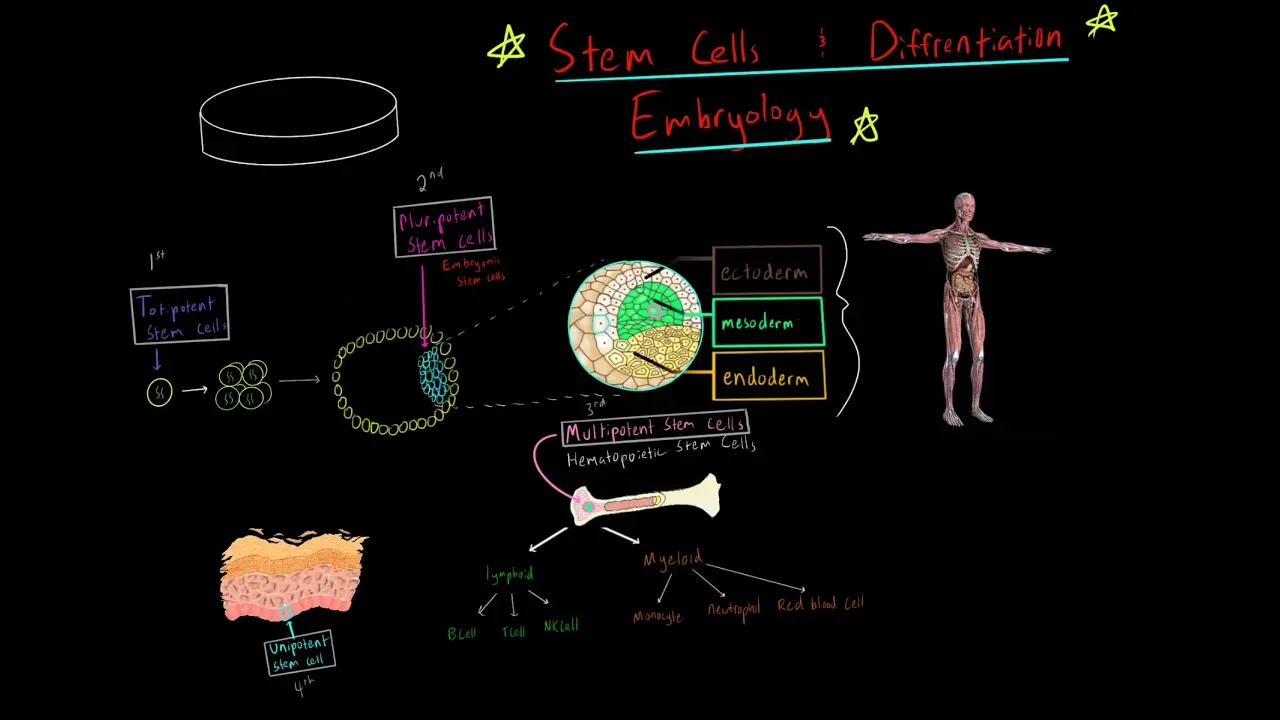 Stem Cells & Diffrentiation
Embryology
2nd
Pluripotent
Stem Cells
Embryonic
Stem cells
1st
Totipotent
Stem Cells
ectoderm
mesoderm
endoderm
3rd
Multipotent Stem Cells
Hematopoietic Stem Cells
lymphoid
Myeloid
B Cell
T Cell
NK Cell
Monocyte
neutrophil
Red blood Cell
Unipotent
Stem cell
4th